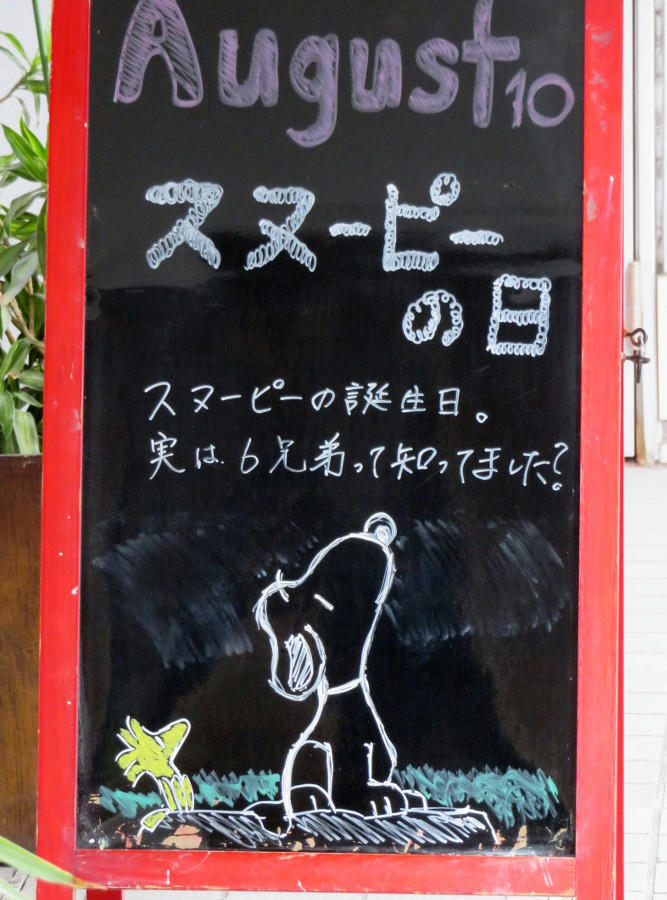 August 10
スヌーピー
の日
スヌーピーの誕生日。
実は6兄弟って知ってました?